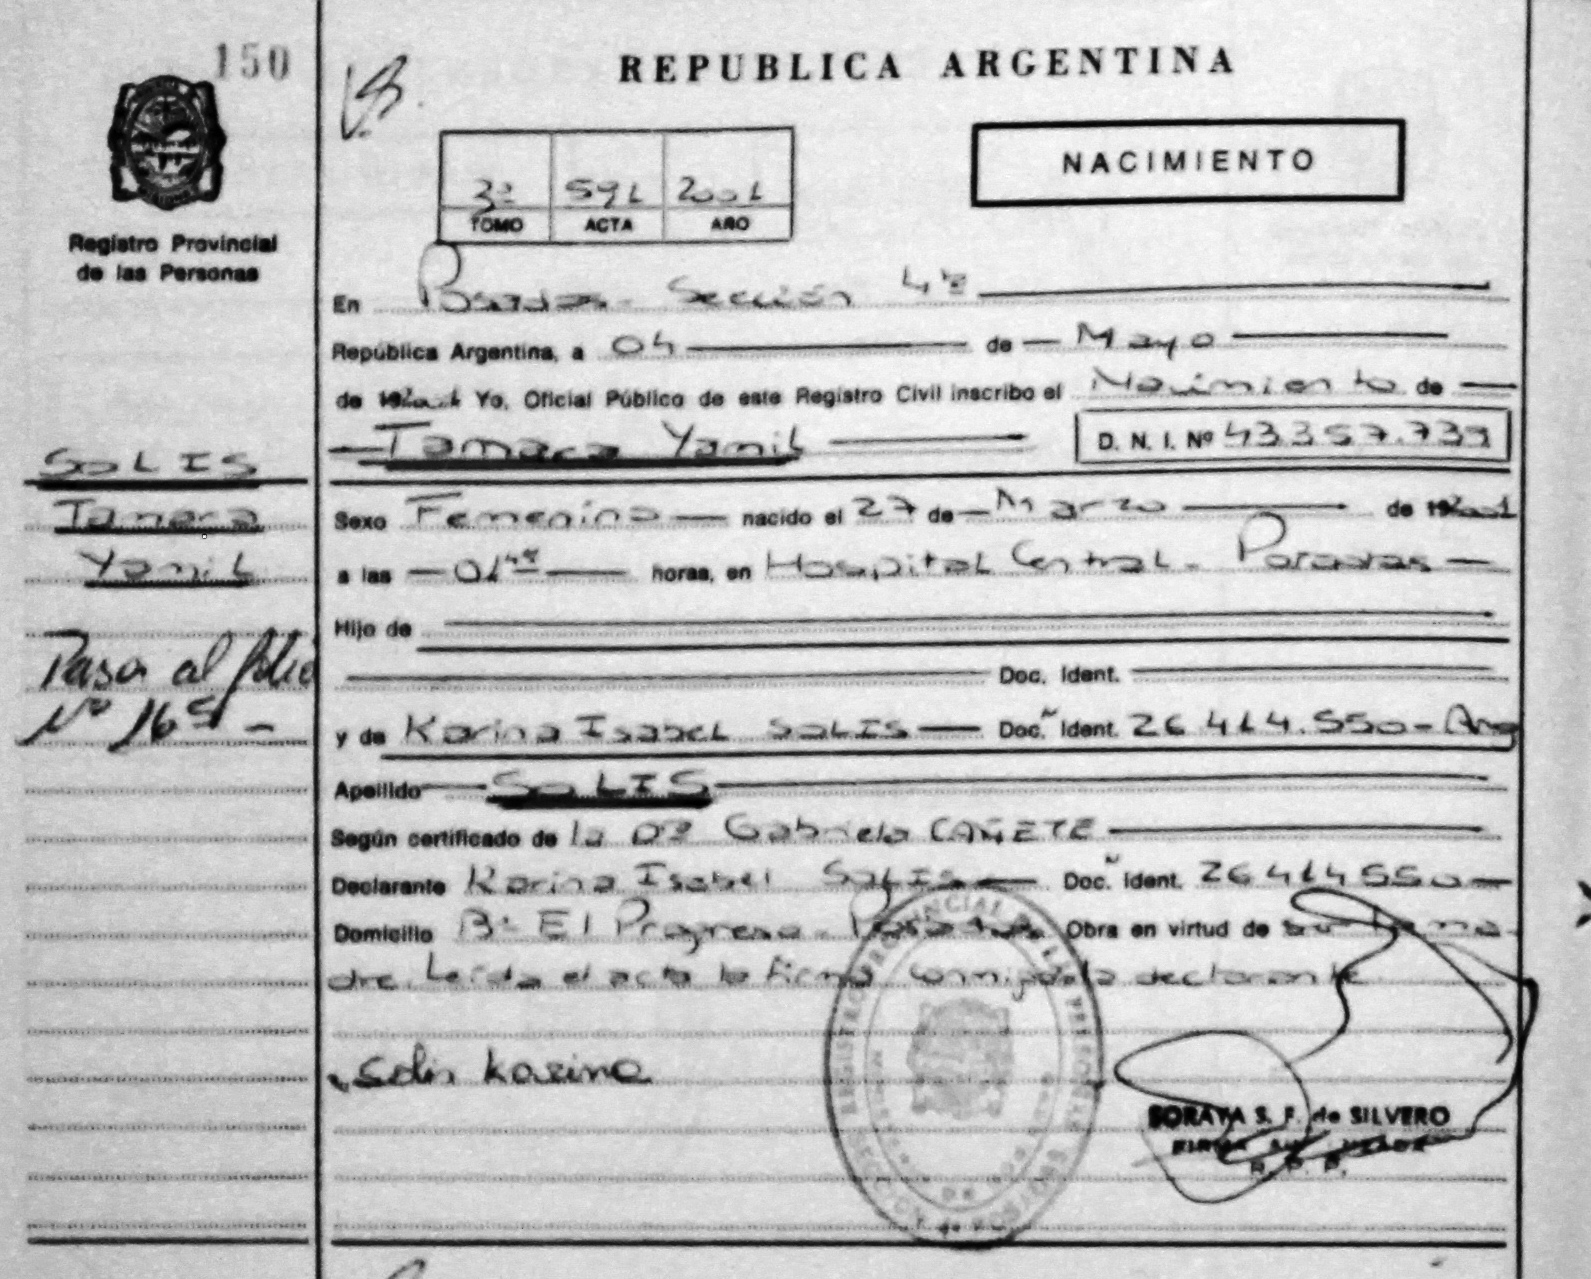 150
REPUBLICA ARGENTINA
NACIMIENTO
3º 591 2001
TOMO ACTA AÑO
Registro Provincial
de las Personas
En Posadas - Sección 4ª
República Argentina, a 04 de Mayo
de 2001 Yo, Oficial Público de este Registro Civil inscribo el Nacimiento de
Tamara Yamil D. N. I. Nº 43.357.739
SOLIS
Tamara
Yamil
Sexo Femenino nacido el 27 de Marzo de 2001
a las 01 horas, en Hospital Central - Posadas
Hijo de
Doc. Ident.
Pasa al folio
Nº 165 -
y de Karina Isabel SOLIS Doc. Ident. 26.414.550 - Arg
Apellido SOLIS
Según certificado de la Dra Gabriela CAÑETE
Declarante Karina Isabel SOLIS Doc. Ident. 26414550
Domicilio Bº El Progreso - Posadas Obra en virtud de ser la ma-
dre. Leída el acta la firma conmigo la declarante
Solis Karina
REGISTRO PROVINCIAL DE LAS PERSONAS
SECCION 4ª POSADAS
SORAYA S. F. de SILVERO
R. P. P.